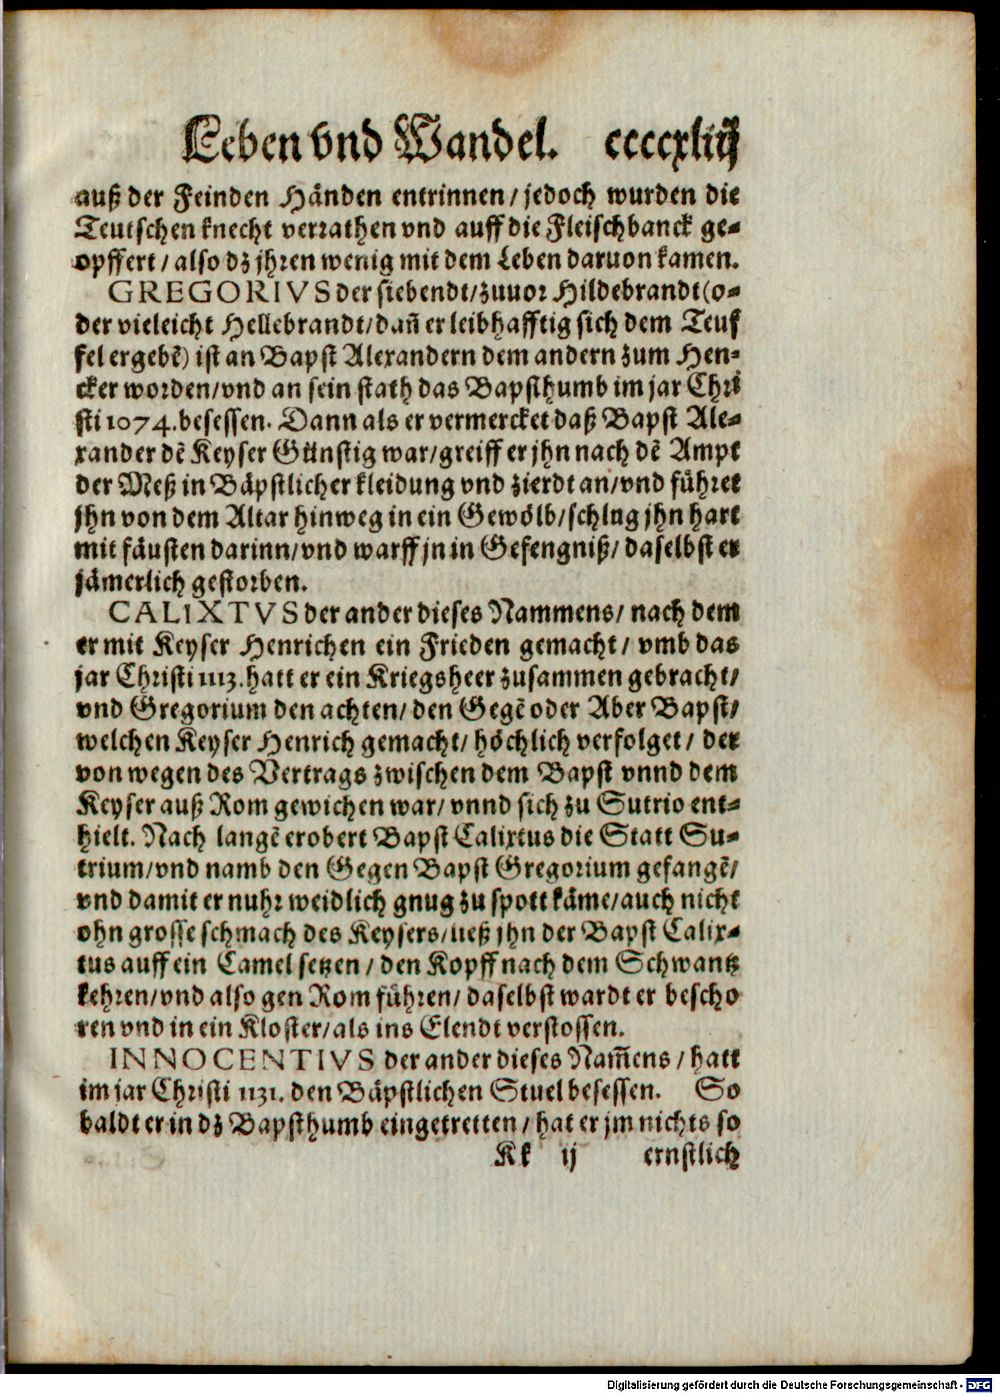 Leben vnd Wandel. ccccxliij
auß der Feinden Händen entrinnen/ jedoch wurden die
Teutschen knecht verrathen vnd auff die Fleischbanck ge⸗
opffert/ also dz jhren wenig mit dem Leben daruon kamen.
GREGORIVS der siebendt/ zuuor Hildebrandt (o⸗
der vieleicht Hellebrandt/ dañ er leibhafftig sich dem Teuf
fel ergebẽ) ist an Bapst Alexandern dem andern zum Hen⸗
cker worden/ vnd an sein stath das Bapsthumb im jar Chri
sti 1074. besessen. Dann als er vermercket daß Bapst Ale⸗
xander dẽ Keyser Günstig war/ greiff er jhn nach dẽ Ampt
der Meß in Bäpstlicher kleidung vnd zierdt an/ vnd führet
jhn von dem Altar hinweg in ein Gewölb/ schlug jhn hart
mit fäusten darinn/ vnd warff jn in Gefengniß/ daselbst er
jämerlich gestorben.
CALIXTVS der ander dieses Nammens/ nach dem
er mit Keyser Henrichen ein Frieden gemacht/ vmb das
jar Christi 1113. hatt er ein Kriegsheer zusammen gebracht/
vnd Gregorium den achten/ den Gegẽ oder Aber Bapst/
welchen Keyser Henrich gemacht/ höchlich verfolget/ der
von wegen des Vertrags zwischen dem Bapst vnnd dem
Keyser auß Rom gewichen war/ vnnd sich zu Sutrio ent⸗
hielt. Nach langẽ erobert Bapst Calixtus die Statt Su⸗
trium/ vnd namb den Gegen Bapst Gregorium gefangẽ/
vnd damit er nuhr weidlich gnug zu spott käme/ auch nicht
ohn grosse schmach des Keysers/ ließ jhn der Bapst Calix⸗
tus auff ein Camel setzen/ den Kopff nach dem Schwantz
kehren/ vnd also gen Rom führen/ daselbst wardt er bescho
ren vnd in ein Kloster/ als ins Elendt verstossen.
INNOCENTIVS der ander dieses Nam̃ens/ hatt
im jar Christi 1131. den Bäpstlichen Stuel besessen. So
baldt er in dz Bapsthumb eingetretten/ hat er jm nichts so
Kk ij ernstlich
Digitalisierung gefördert durch die Deutsche Forschungsgemeinschaft - DFG